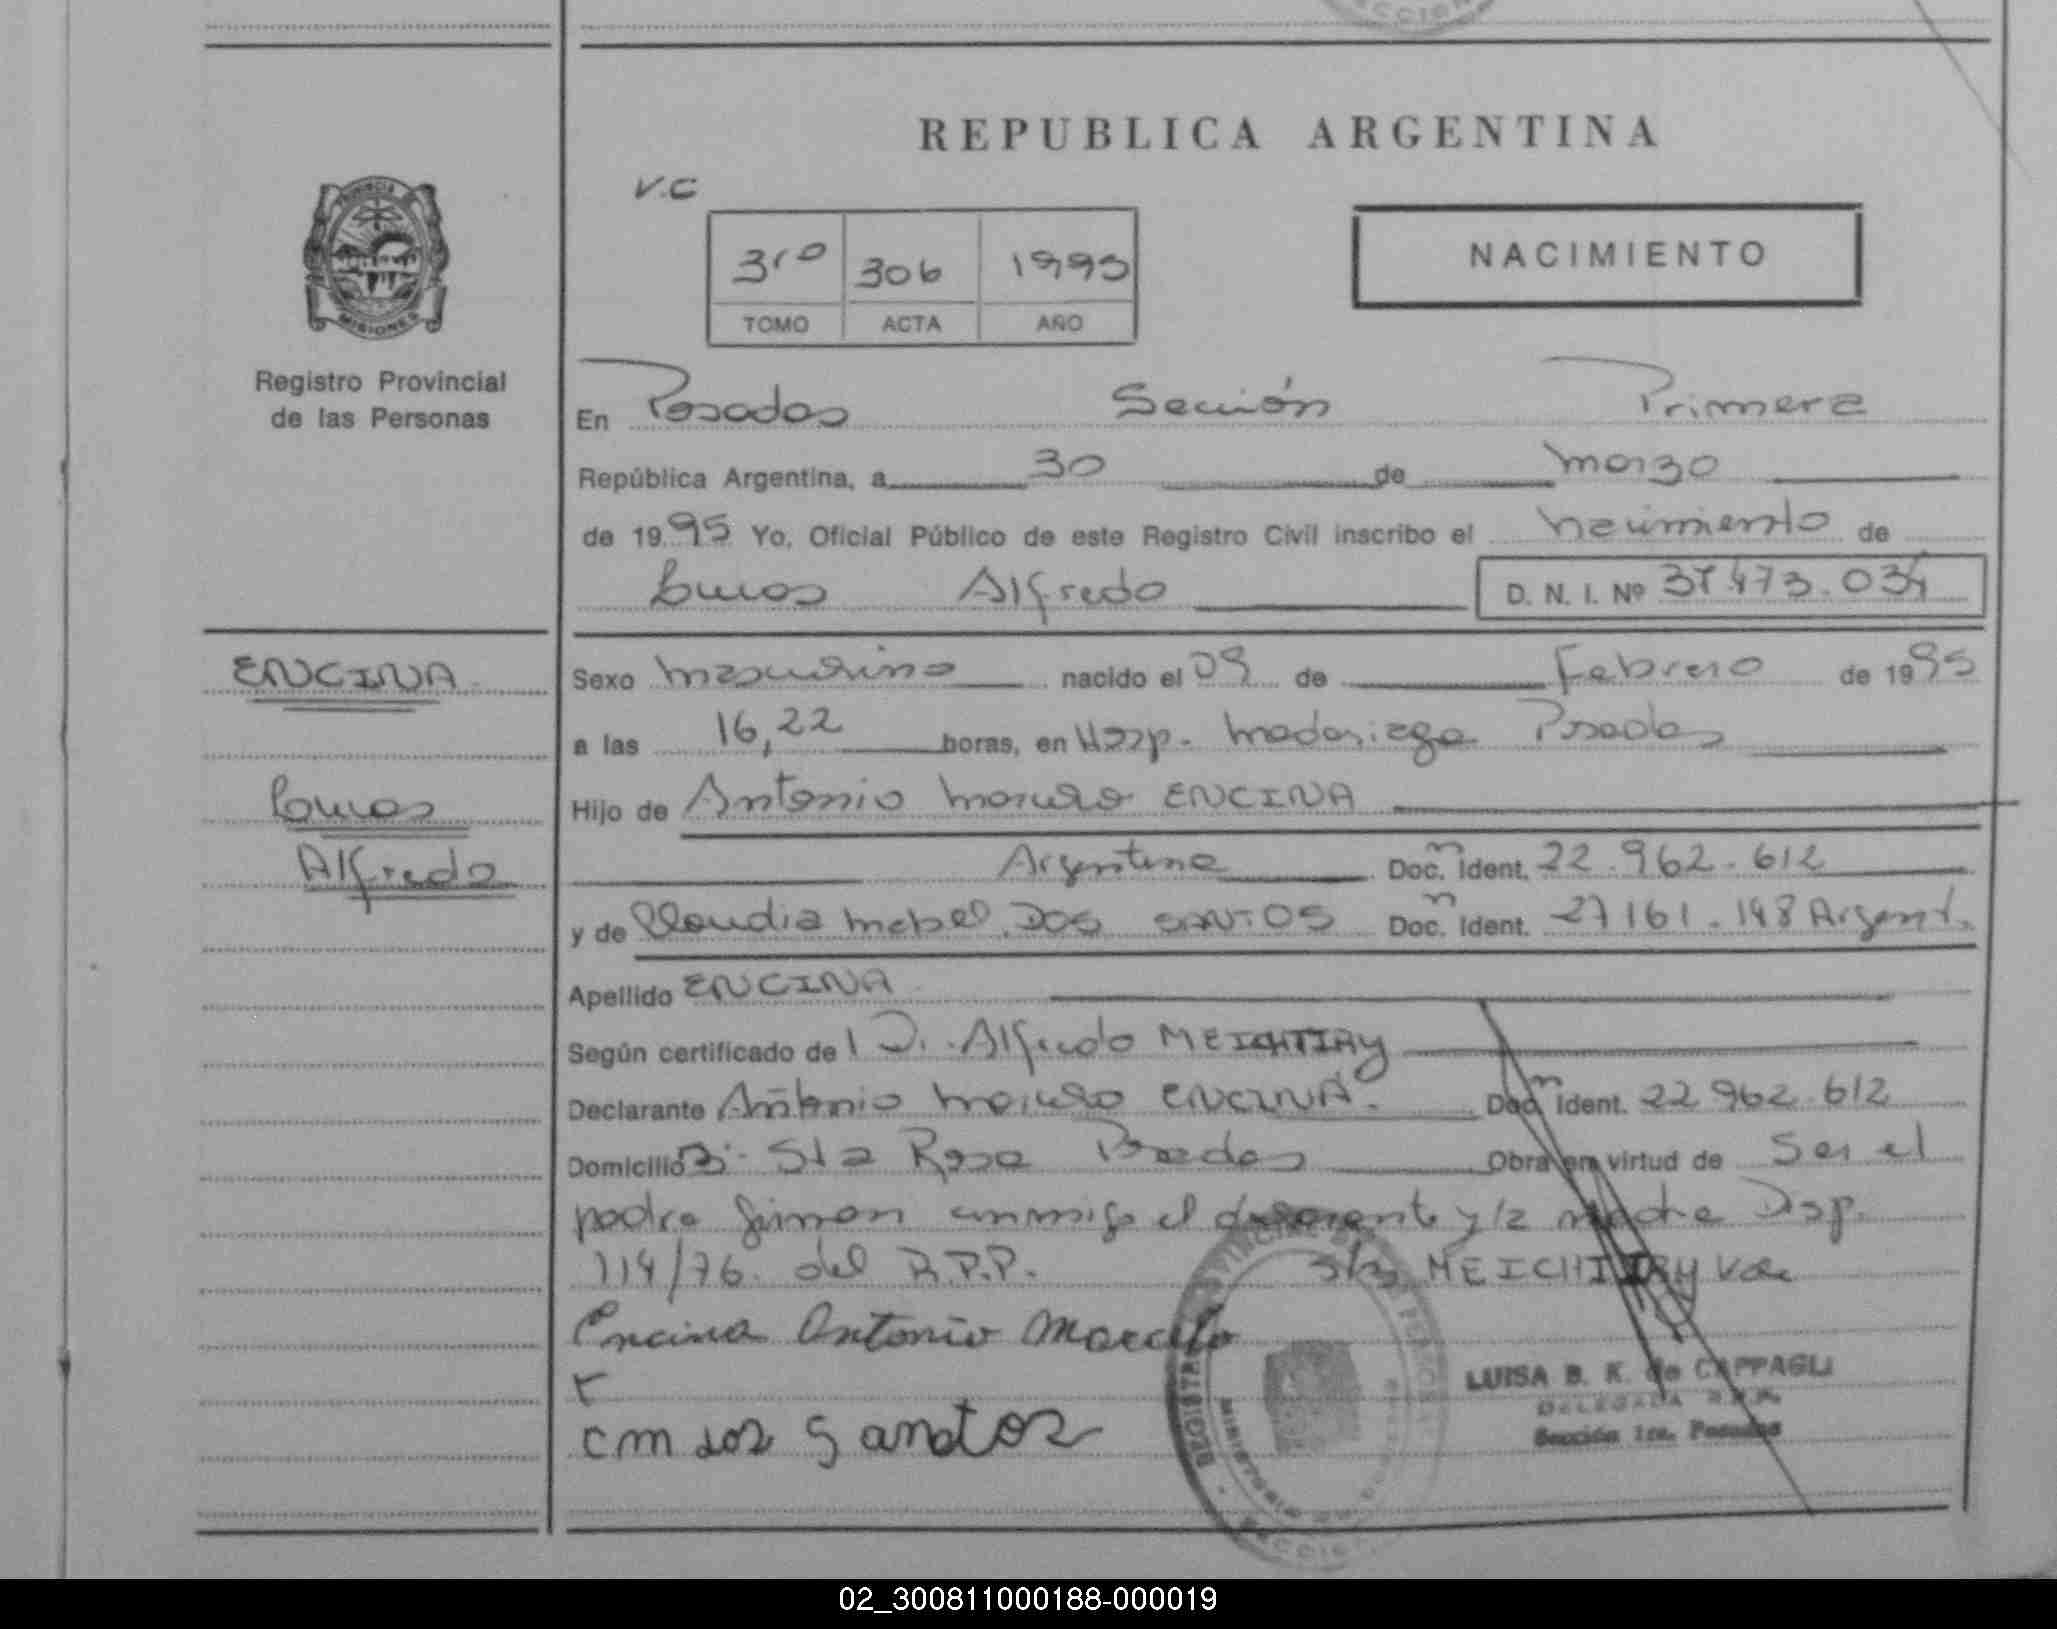 REPUBLICA ARGENTINA
V.C
3ro 306 1995
TOMO ACTA AÑO
NACIMIENTO
PROVINCIA
MISIONES
Registro Provincial
de las Personas
En Posadas Sección Primera
República Argentina, a 30 de marzo
de 1995 Yo, Oficial Público de este Registro Civil inscribo el nacimiento de
Lucas Alfredo D. N. I. Nº 37.473.034
ENCINA
Lucas
Alfredo
Sexo masculino nacido el 09 de Febrero de 1995
a las 16,22 horas, en Hosp. Madariaga Posadas
Hijo de Antonio Marcelo ENCINA
Argentina Doc. n Ident. 22.962.612
y de Claudia Mabel DOS SANTOS Doc. n Ident. 27161.148 Argent.
Apellido ENCINA
Según certificado de Alfredo MEICHTRY
Declarante Antonio Marcelo ENCINA. Doc. n Ident. 22 962.612
Domicilio Bº Sta Rosa Posadas Obra en virtud de Ser el
padre firman conmigo el y la madre Disp.
114/76. del R.P.P. S/b MEICHTRY Vale
Encina Antonio Marcelo
cm dos Santos
LUISA B. K. de CAPPAGLI
DELEGADA R.P.P.
Sección 1ra. Posadas
02_300811000188-000019